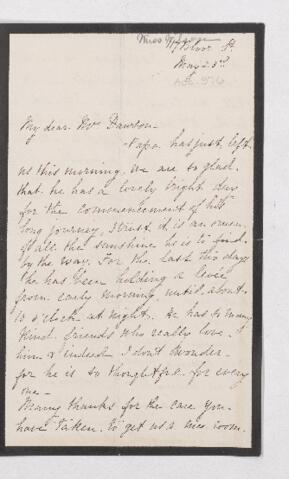 Miss Wilson
117 Bloor St.
May 23rd
My dear Mrs Dawson -
Papa has just left
us this morning. We are so glad
that he has a lovely bright day
for the commencement of his
long journey, I trust it is an omen
of all the sunshine he is to find
by the way. For the last two days
he has been holding a levée
from early morning until about
10 o'clock at night. He has so many
kind friends who really love
him & indeed I don't wonder -
for he is so thoughtful for every
one -
Many thanks for the care you
have taken to get us a nice room.